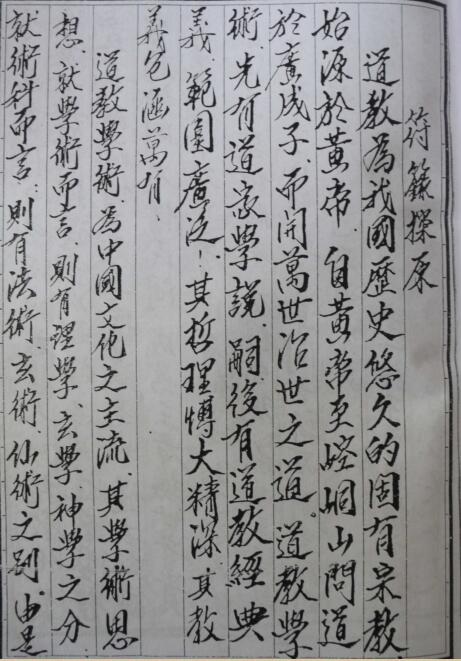 符籙探原
道教為我國歷史悠久的固有宗教
始源於黃帝．自黃帝至崆峒山問道
於廣成子．而開萬世治世之道。道教學
術．先有道家學說．嗣後有道教經典
義．範圍廣泛！其哲理博大精深．其教
義包涵萬有．
道教學術．為中國文化之主流．其學術思
想．就學術而言．則有理學．玄學．神學之分
就術科而言．則有法術．玄術．仙術之別．由是